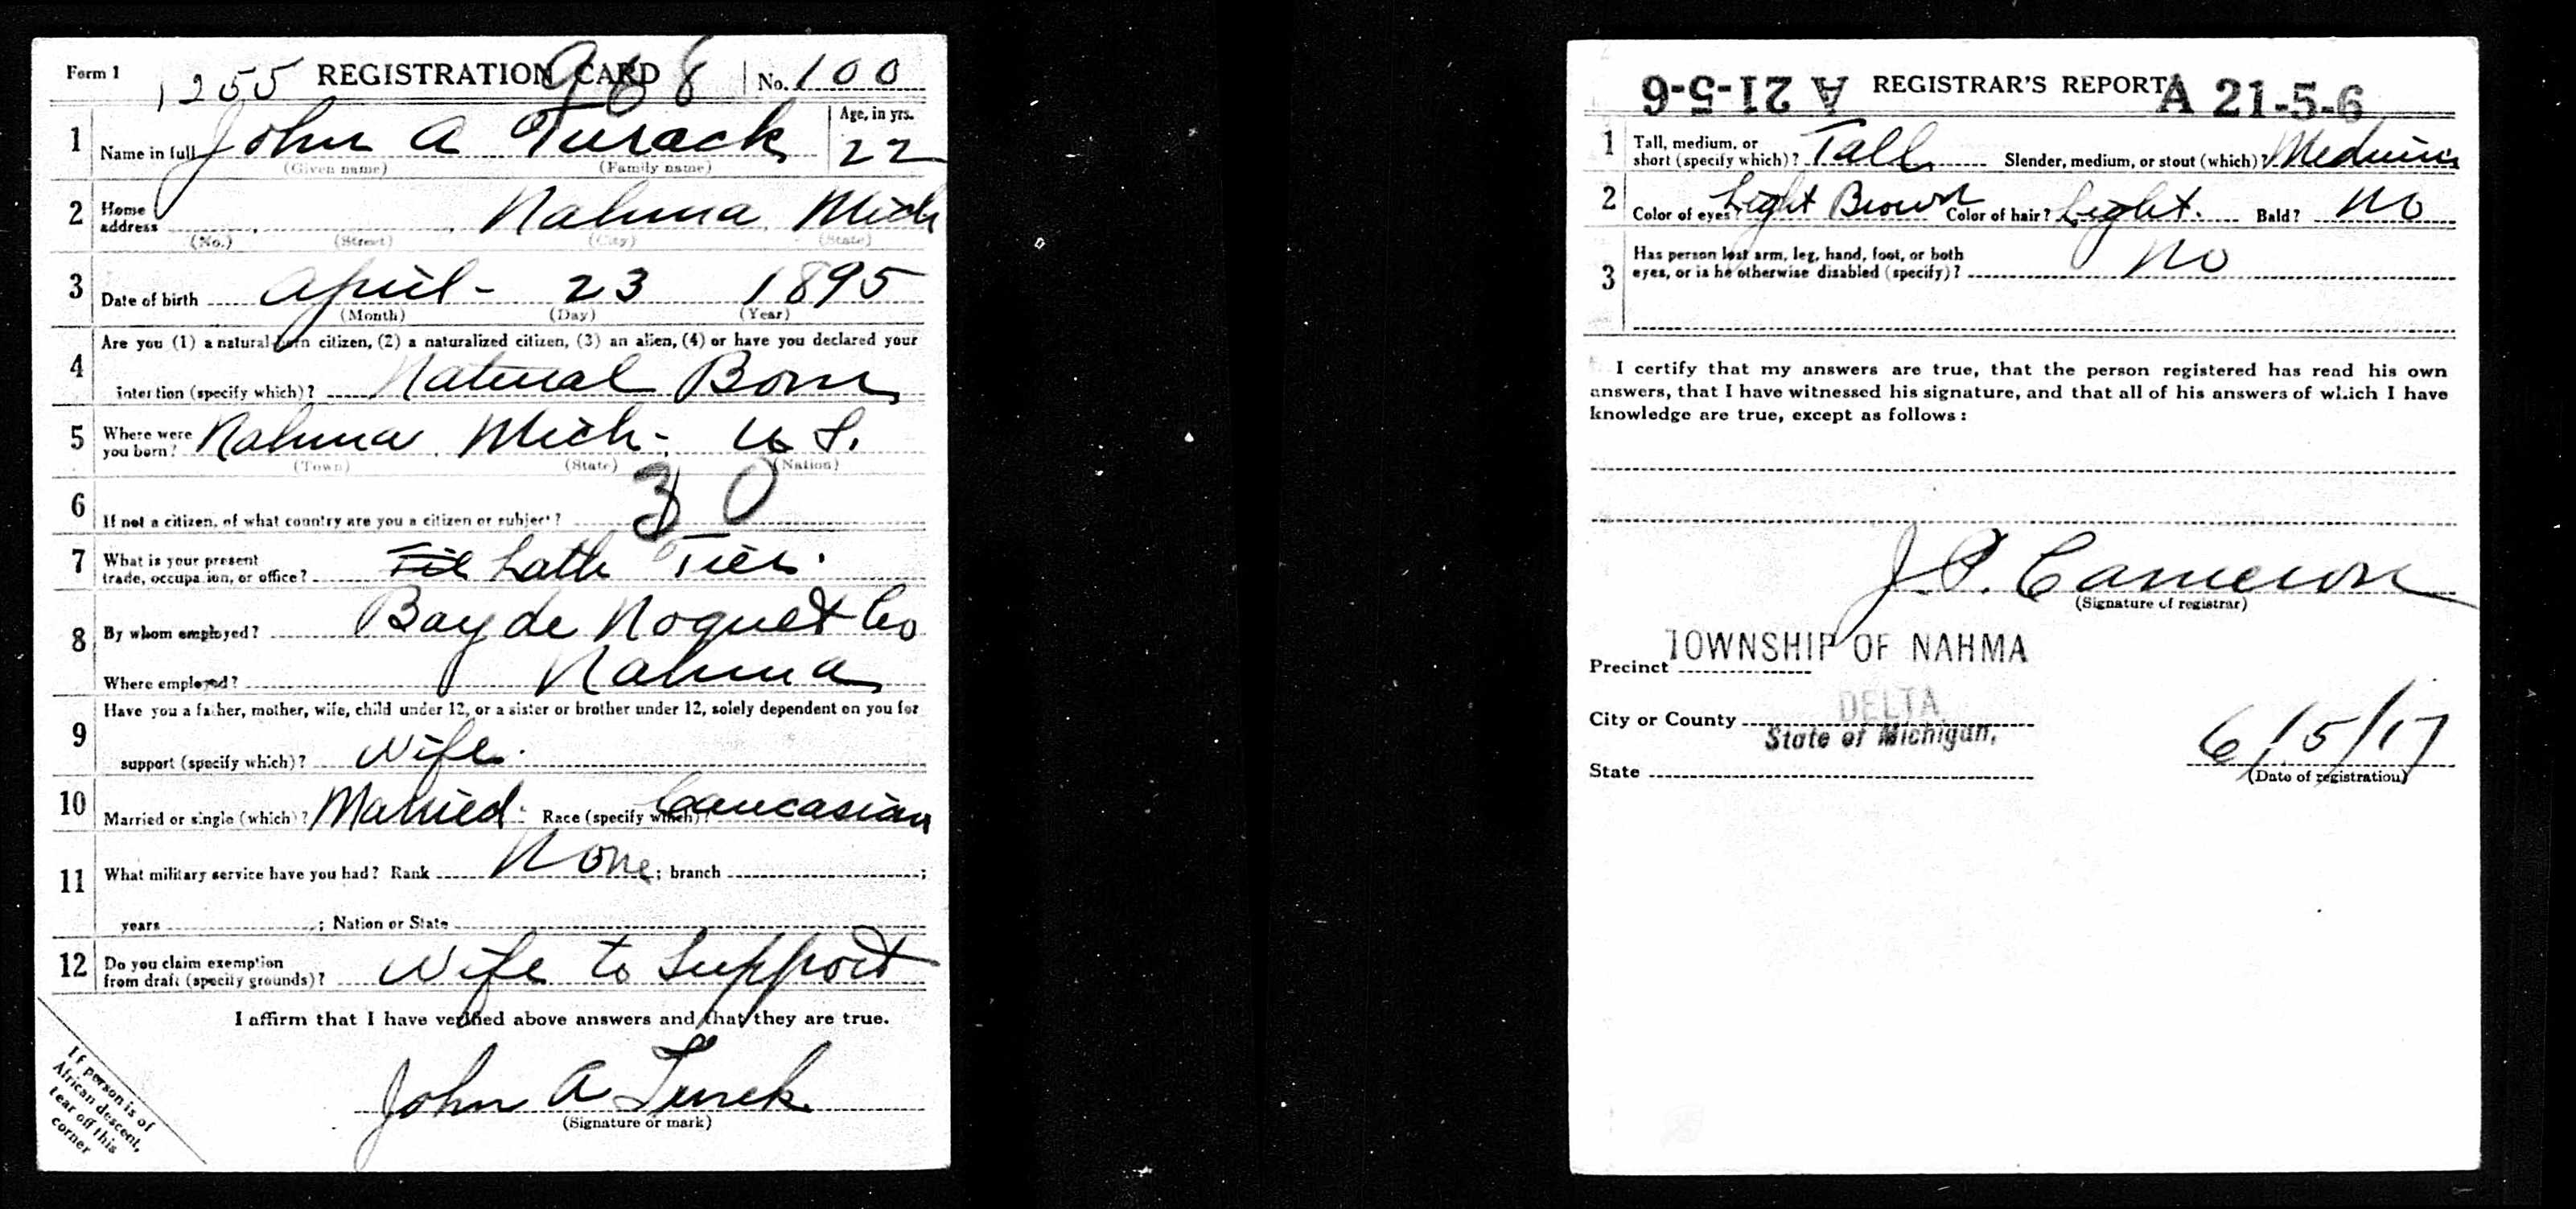 Form 1 1255 REGISTRATION CARD 968 No. 100
1 Name in full John A Turack Age, in yrs. 22
(Given name) (Family name)
2 Home address Nahma Mich
(No.) (Street) (City) (State)
3 Date of birth April - 23 1895
(Month) (Day) (Year)
4 Are you (1) a natural-born citizen, (2) a naturalized citizen, (3) an alien, (4) or have you declared your
intention (specify which)? Natural Born
5 Where were you born? Nahma Mich. U S.
(Town) (State) (Nation)
30
6 If not a citizen, of what country are you a citizen or subject?
7 What is your present trade, occupation, or office? Lath Tier.
8 By whom employed? Bay de Noquet Co
Where employed? Nahma
9 Have you a father, mother, wife, child under 12, or a sister or brother under 12, solely dependent on you for
support (specify which)? Wife.
10 Married or single (which)? Married. Race (specify which)? Caucasian
11 What military service have you had? Rank None; branch ;
years ; Nation or State
12 Do you claim exemption from draft (specify grounds)? Wife to Support
I affirm that I have verified above answers and that they are true.
John A Turek
(Signature or mark)
If person is of
African descent,
tear off this
corner
A 21-5-6 REGISTRAR'S REPORT A 21-5-6
1 Tall, medium, or short (specify which)? Tall Slender, medium, or stout (which)? Medium
2 Color of eyes? Light Brown Color of hair? Light. Bald? No
3 Has person lost arm, leg, hand, foot, or both
eyes, or is he otherwise disabled (specify)? No
I certify that my answers are true, that the person registered has read his own
answers, that I have witnessed his signature, and that all of his answers of which I have
knowledge are true, except as follows:
J. P. Cameron
(Signature of registrar)
Precinct TOWNSHIP OF NAHMA
City or County DELTA
State of Michigan,
State
6/5/17
(Date of registration)